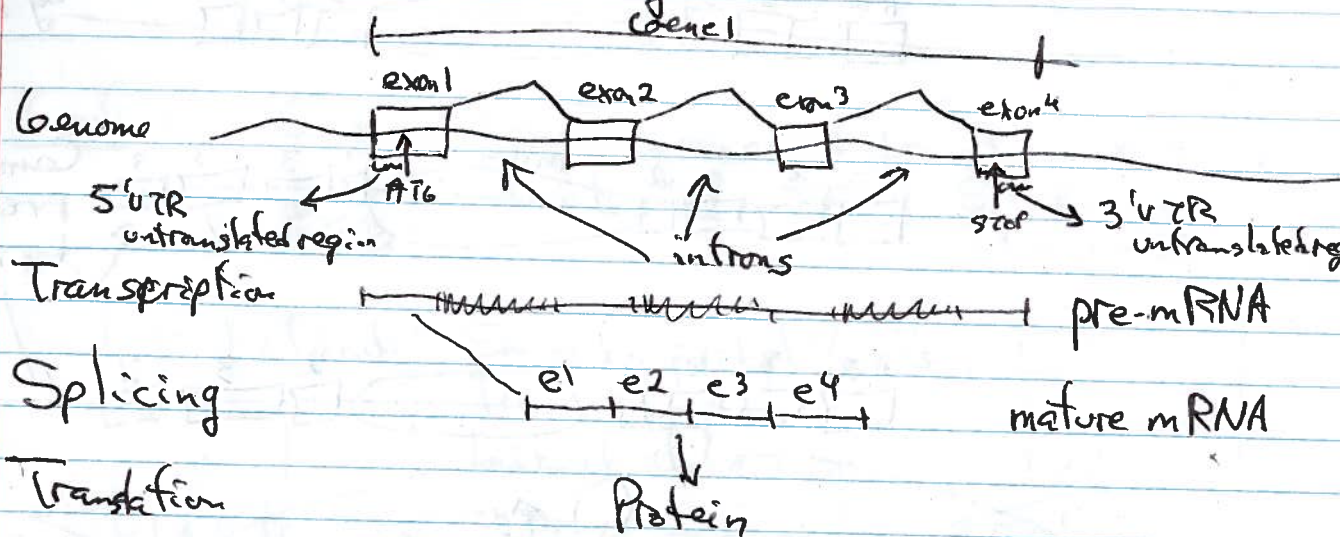 Gene1
exon1 exon2 exon3 exon4
Genome
ATG
STOP
5'UTR
untranslated region
3'UTR
untranslatedreg
introns
Transpription
pre-mRNA
Splicing
e1 e2 e3 e4
mature mRNA
Translation
Protein